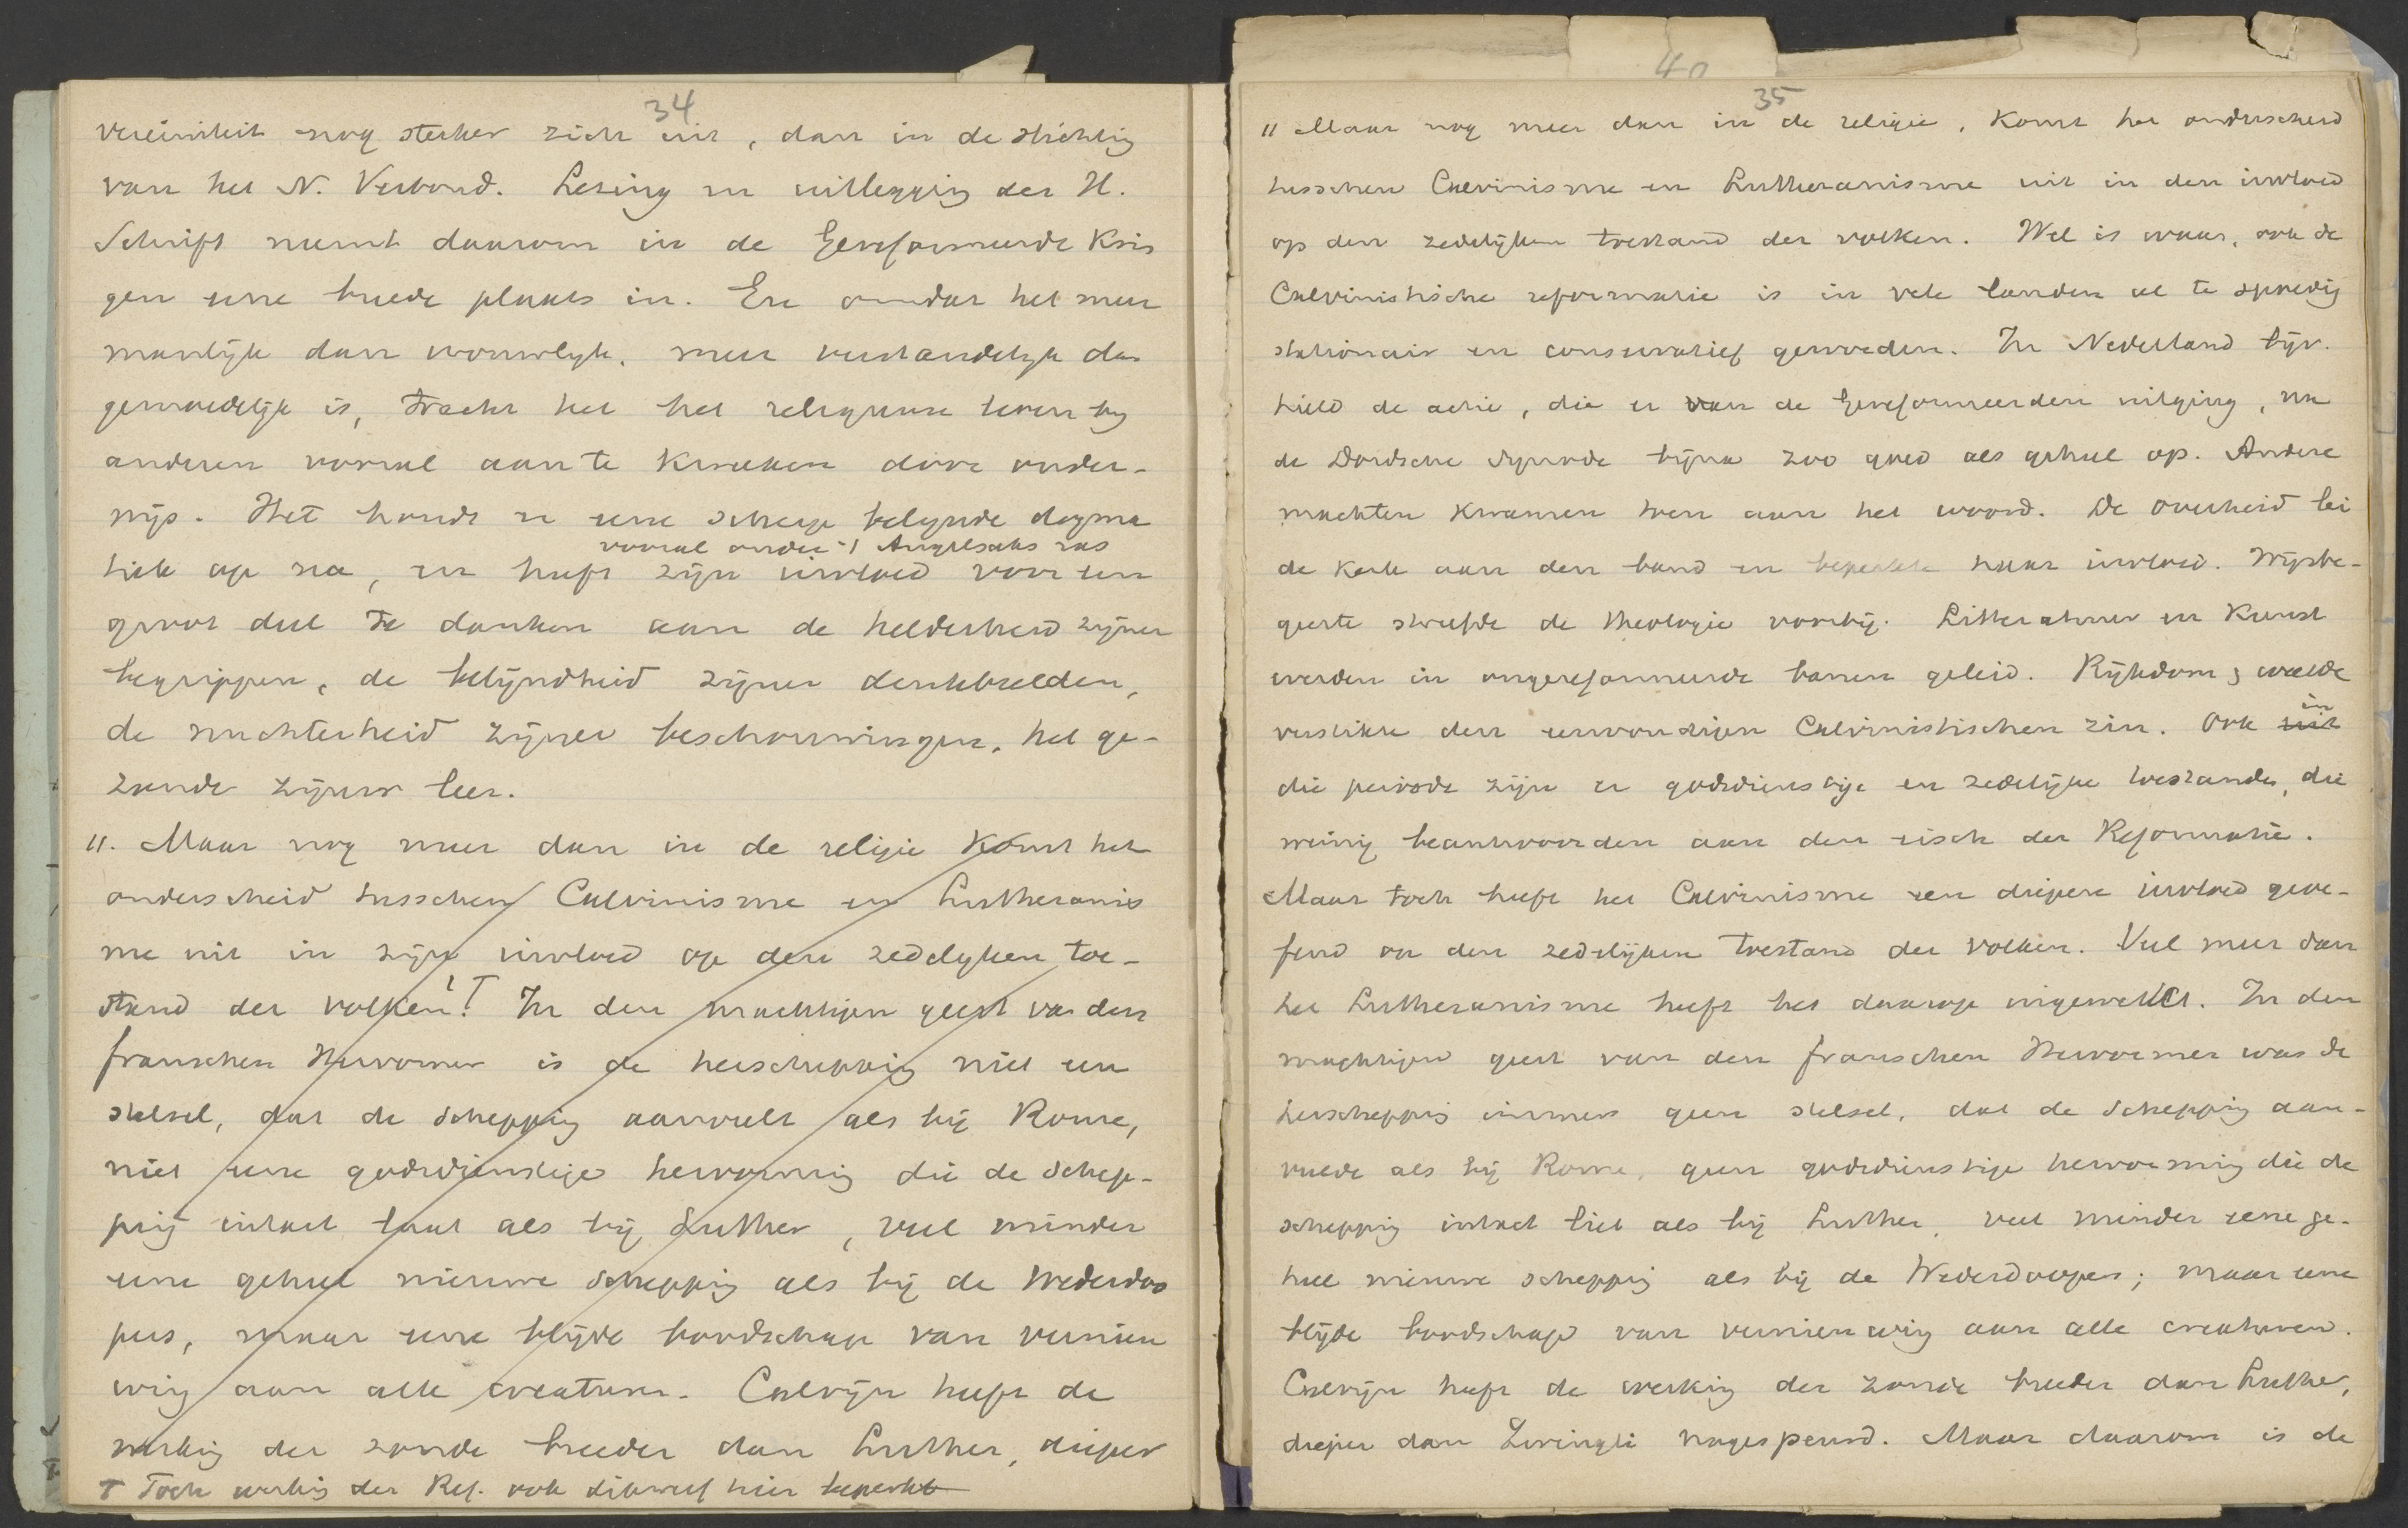 34
vereischt nog sterker zich uit, dan in de stichting
van het N. Verbond. Lezing en uitlegging der H.
Schrift neemt daarom in de Gereformeerde Krin
gen eene breede plaats in. En omdat het meer
manlijk dan vrouwlijk, meer verstandelijk dan
gemoedelijk is, tracht het het religieuse leven bij
anderen vooral aan te kweeken door onder-
wijs. Het houdt er eene scherp belijnde dogma
vooral onder 't Angelsaks ras
tiek op na, en heeft zijn invloed voor een
groot deel te danken aan de helderheid zijner
begrippen, de belijndheid zijner denkbeelden,
de nuchterheid zijner beschouwingen, het ge-
zonde zijner leer.
11. Maar nog meer dan in de religie komt het
onderscheid tusschen Calvinisme en Lutheranis
me uit in zijn invloed op den zedelyken toe-
stand der volken! T In den machtigen geest van den
franschen Hervormer is de herschepping niet een
stelsel, dat de schepping aanvult als bij Rome,
niet eene godsdienstige hervorming die de schep-
ping intact laat als bij Luther, veel minder
eene geheel nieuwe schepping als bij de Wederdoo
pers, maar eene blijde boodschap van vernieu
wing aan alle creaturen. Calvijn heeft de
werking der zonde breeder dan Luther, dieper
T Toch werking der Ref. ook dikwerf hier beperkt
40
35
11 Maar nog meer dan in de religie, komt het onderscheid
tusschen Calvinisme en Lutheranisme uit in den invloed
op den zedelijken toestand der volken. Wel is waar, ook de
Calvinistische reformatie is in vele landen al te spoedig
stationair en conservatief geworden. In Nederland bijv.
hield de actie, die er van de Gereformeerden uitging, na
de Dordsche Synode bijna zoo goed als geheel op. Andere
machten kwamen toen aan het woord. De overheid lei
de kerk aan den band en beperkte haar invloed. Wijsbe-
geerte streefde de theologie voorbij. Litteratuur en Kunst
werden in ongereformeerde banen geleid. Rijkdom & weelde
verstikte den eenvoudigen Calvinistischen zin. Ook uit
in
die periode zijn er godsdienstige en zedelijke toestanden, die
weinig beantwoorden aan den eisch der Reformatie.
Maar toch heeft het Calvinisme een diepere invloed geoe-
fend op den zedelijken toestand der volken. Veel meer dan
het Lutheranisme heeft het daarop ingewerkt. In den
machtigen geest van den franschen Hervormer was de
herschepping immers geen stelsel, dat de schepping aan-
vulde als bij Rome, geen godsdienstige hervorming die de
schepping intact liet als bij Luther, veel minder eene ge-
heel nieuwe schepping als bij de Wederdoopers; maar eene
blijde boodschap van vernieuwing aan alle creaturen.
Calvijn heeft de werking der zonde breeder dan Luther,
dieper dan Zwingli nagespeurd. Maar daarom is de